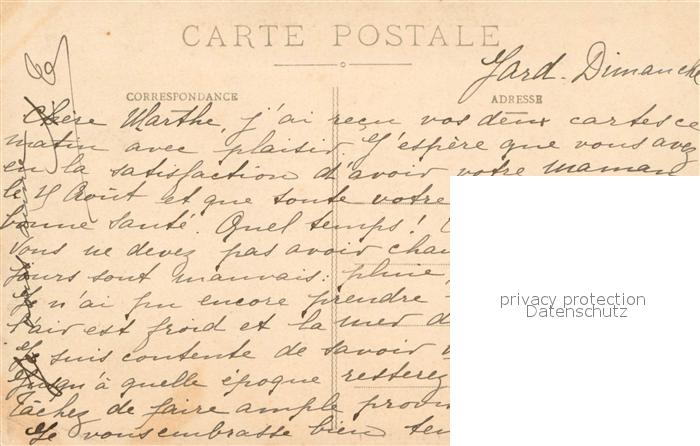 CARTE POSTALE
Gard. Dimanche
CORRESPONDANCE
ADRESSE
Chère Marthe, j'ai reçu vos deux cartes ce
matin avec plaisir. J'espère que vous avez
eu la satisfaction d'avoir votre maman
le 15 Août et que toute votre
bonne santé. Quel temps!
Vous ne devez pas avoir chau
jours sont mauvais: pluie,
Je n'ai pu encore prendre
l'air est froid et la mer d
Je suis contente de savoir
Jusqu'à quelle époque resterez
Tâchez de faire ample provi
Je vous embrasse bien ten
privacy protection
Datenschutz